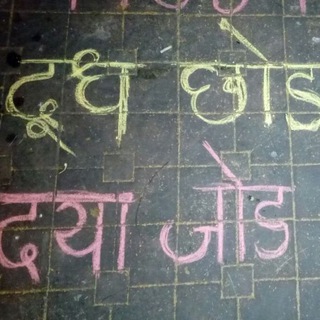 दूध छोड
दया जोड